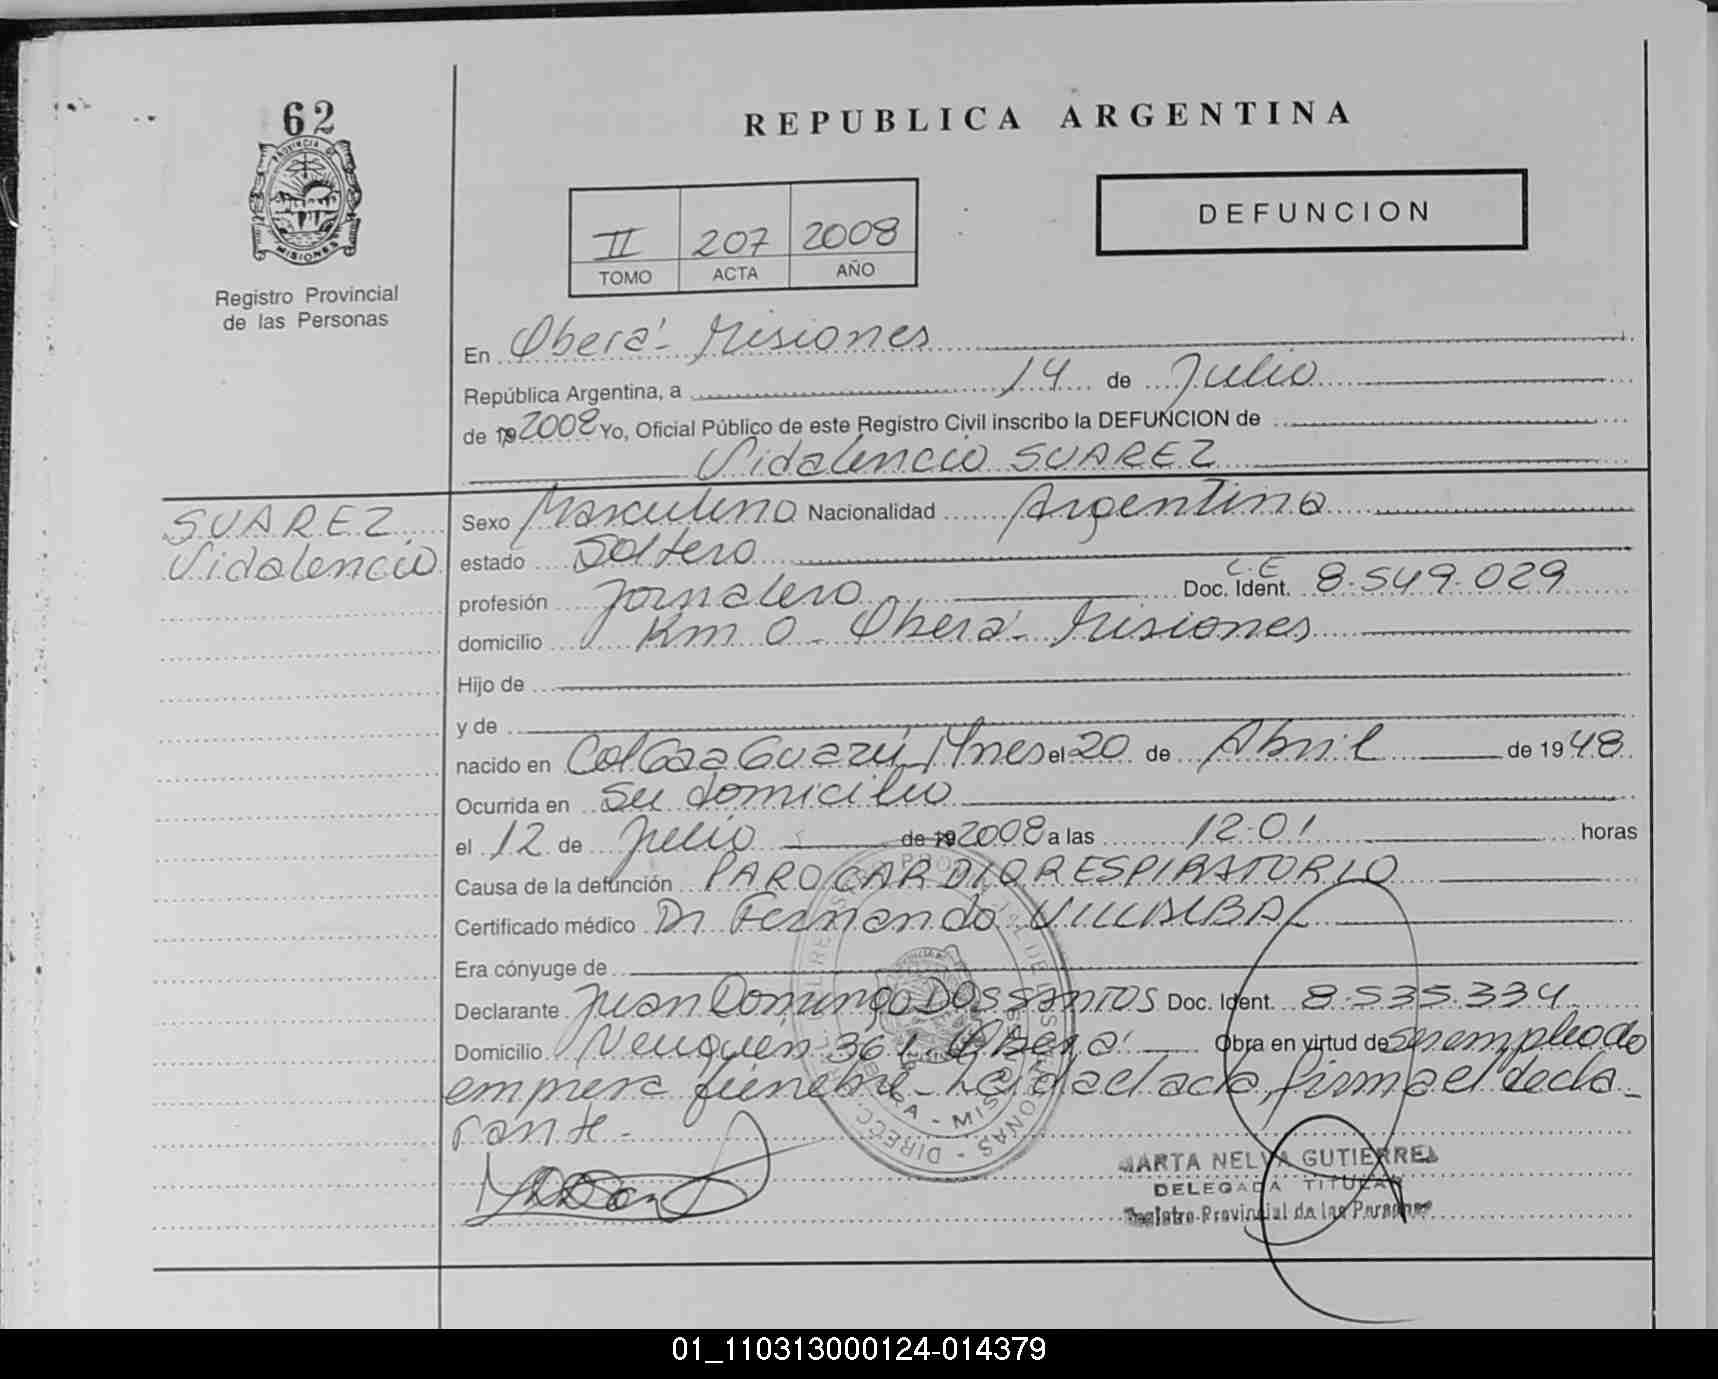 62
PROVINCIA DE
MISIONES
Registro Provincial
de las Personas
REPUBLICA ARGENTINA
DEFUNCION
II 207 2008
TOMO ACTA AÑO
En Oberá - Misiones
República Argentina, a 14 de Julio
de 19 2008 Yo, Oficial Público de este Registro Civil inscribo la DEFUNCION de
Vidalencio SUAREZ
SUAREZ
Vidalencio
Sexo Masculino Nacionalidad Argentina
estado Soltero
profesión Jornalero Doc. Ident. L.E 8.549.029
domicilio Km 0 - Oberá - Misiones
Hijo de
y de
nacido en Col Gaa Guazú Mnes el 20 de Abril de 1948
Ocurrida en Su domicilio
el 12 de Julio de 19 2008 a las 12:01 horas
Causa de la defunción PARO CARDIORESPIRATORIO
Certificado médico Dr Fernando VILLALBA
Era cónyuge de
Declarante Juan Domingo DOS SANTOS Doc. Ident. 8.535.334
Domicilio Neuquén 361 - Oberá Obra en virtud de ser empleado
empresa fúnebre - Leida el acta, firma el decla-
rante -
MARTA NELVA GUTIERREZ
DELEGADA TITULAR
Registro Provincial de las Personas
01_110313000124-014379